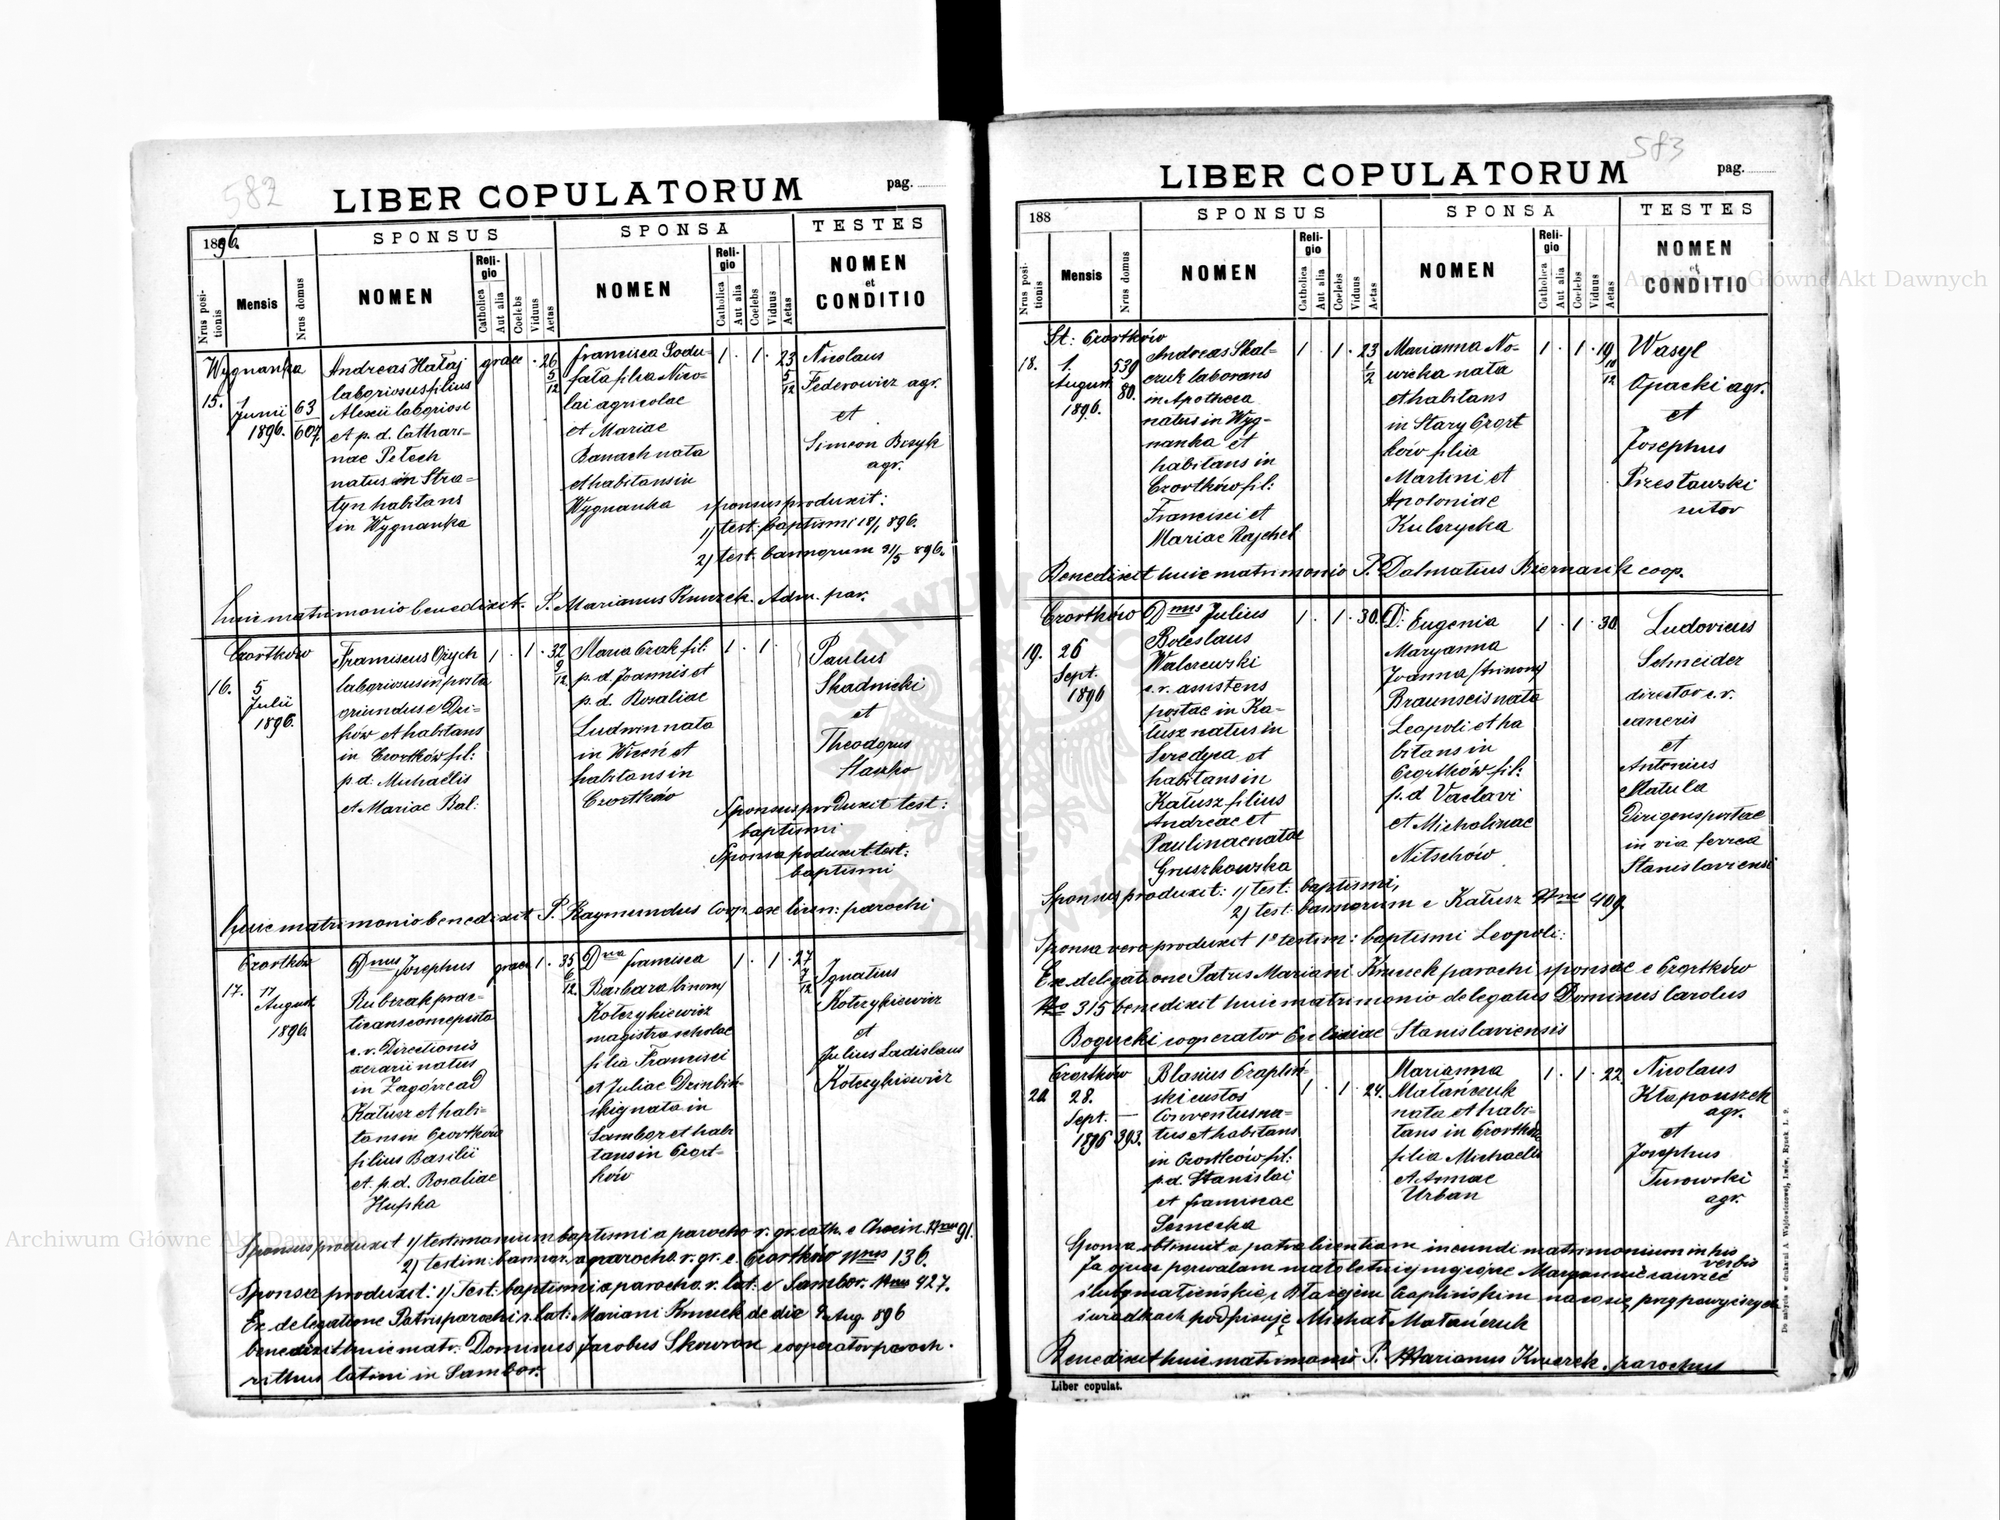 582
LIBER COPULATORUM
pag.
1896.
SPONSUS
SPONSA
TESTES
Nrus positionis
Mensis
Nrus domus
NOMEN
Religio
Catholica
Aut alia
Coelebs
Viduus
Aetas
NOMEN
Religio
Catholica
Aut alia
Coelebs
Viduus
Aetas
NOMEN
et
CONDITIO
Wygnanka
15.
Junii
1896.
63
607
Andreas Hałaj
laboriosus filius
Alexii laboriosi
et p. d. Cathari-
nae Petech
natus in Stra-
tyn habitans
in Wygnanka
26
5/12
Francisca Sodu-
fata filia Nico-
lai agricolae
et Mariae
Banach nata
et habitans in
Wygnanka
1 . 1 . 23
5/12
Nicolaus
Federowicz agr.
et
Simeon Bosyk
agr.
sponsus produxit:
1) test. baptismi 18/1 896.
2) test. bannorum 31/5 896.
huic matrimonio benedixit. P. Marianus Kruczek. Adm. par.
Czortków
16.
5
Julii
1896.
Franciscus Ożych
laboriosus in posta
oriundus e Dzi-
ków et habitans
in Czortków fil:
p. d. Michaëlis
et Mariae Bal:
1 . 1 . 32
9/12
Maria Czok fil:
p. d. Joannis et
p. d. Rosaliae
Ludwin nata
in Wizeń et
habitans in
Czortków
1 . 1 .
Paulus
Skadnicki
et
Theodorus
Haszko
Sponsus produxit test:
baptismi
Sponsa poduxit test:
baptismi
huic matrimonio benedixit P. Raymundus Coop. ex licen: parochi
Czortków
17.
17
August.
1896.
Dnus Josephus
Ruberak prac-
ticans comeposta
c. r. Directionis
aerarii natus
in Zagórze ad
Kałusz et habi-
tans in Czortków
filius Basilii
et p. d. Rosaliae
Hupka
1 . 35
6/12
Dna Francisca
Barbara binomy
Kołczykiewicz
magistra scholae
filia Francisci
et Juliae Dzinbiń-
ski nata in
Sambor et habi
tans in Czort-
ków
1 . 1 . 27
7/12
Ignatius
Kołczykiewicz
et
Julius Ladislaus
Kołczykiewicz
Sponsus produxit 1) testimonium baptismi a parocho r. gr. cath. e Chocin. Nrus 91.
2) testim: bannor. a parocho. r. gr. e. Czortków Nrus 136.
Sponsa produxit: 1) Test. baptismi a parocho. r. lat. e Sambor. Nrus 427.
Ex delegatione Patris parochi r. lat: Mariani Kruczek de die 9. Aug. 896
benedixit huic matr. Dominus Jacobus Skowron cooperator paroch.
rithus latini in Sambor.
583
LIBER COPULATORUM
pag.
188
SPONSUS
SPONSA
TESTES
Nrus positionis
Mensis
Nrus domus
NOMEN
Religio
Catholica
Aut alia
Coelebs
Viduus
Aetas
NOMEN
Religio
Catholica
Aut alia
Coelebs
Viduus
Aetas
NOMEN
et
CONDITIO
St: Czortków
18.
1.
August
1896.
539
80.
Andreas Skal-
czuk laborans
in Apotheca
natus in Wyg-
nanka et
habitans in
Czortków fil:
Francisci et
Mariae Rajchel
1 . 1 . 23
1/2
Marianna No-
wicka nata
et habitans
in Stary Czort
ków filia
Martini et
Apoloniae
Kulczycka
1 . 1 . 19
10/12
Wasyl
Opacki agr.
et
Josephus
Przestawski
sutor
Benedixit huic matrimonio P. Dalmatius Biernacik coop.
Czortków
19.
26
Sept.
1896
Dnus Julius
Boleslaus
Walczewski
c. r. assistens
postae in Ka-
łusz natus in
Seredyca et
habitans in
Kałusz filius
Andreae et
Paulinae natae
Gruszkowska
1 . 1 . 30.
D: Eugenia
Maryanna
Joanna /trinomy/
Braunseis nata
Leopoli et ha
bitans in
Czortków fil:
p. d Vaclavi
et Michalinae
Nitschów
1 . 1 . 30
Ludovicus
Schneider
director c. r.
carceris
et
Antonius
Matula
Dirigens postae
in via ferrea
Stanislaviensi
Sponsus produxit: 1) test: baptismi,
2) test. bannorum e Kałusz Nrus 409.
Sponsa vero produxit 1º testim: baptismi Leopoli:
Ex delegatione Patris Mariani Kruczek parochi sponsae e Czortków
No 315 benedixit huic matrimonio delegatus Dominus Carolus
Bogucki cooperator Ecclesiae Stanislaviensis
Czortków
20.
28.
Sept.
1896
393.
Blasius Czapliń-
ski custos
Conventus na-
tus et habitans
in Czortków fil:
p.d. Stanislai
et Franciscae
Semecka
1 . 1 24.
Marianna
Matańczuk
nata et habi-
tans in Czortków
filia Michaelis
et Annae
Urban
1 . 1 . 22
Nicolaus
Kłapouszek
agr.
et
Josephus
Turowski
agr.
Sponsa obtinuit a patre licentiam ineundi matrimonium in his
verbis
Ja ojciec pozwalam małoletniej mej córce Maryannie zawrzeć
ślub małżeński z Błażejem Czaplińskim na co się przy powyższych
świadkach podpisuję Michał Matańczuk
Benedixit huic matrimonio P. Marianus Kruczek. parochus
Liber copulat.
Do nabycia w drukarni A. Wajdowiczowej, Lwów, Rynek L. 9.
Archiwum Główne Akt Dawnych
Archiwum Główne Akt Dawnych